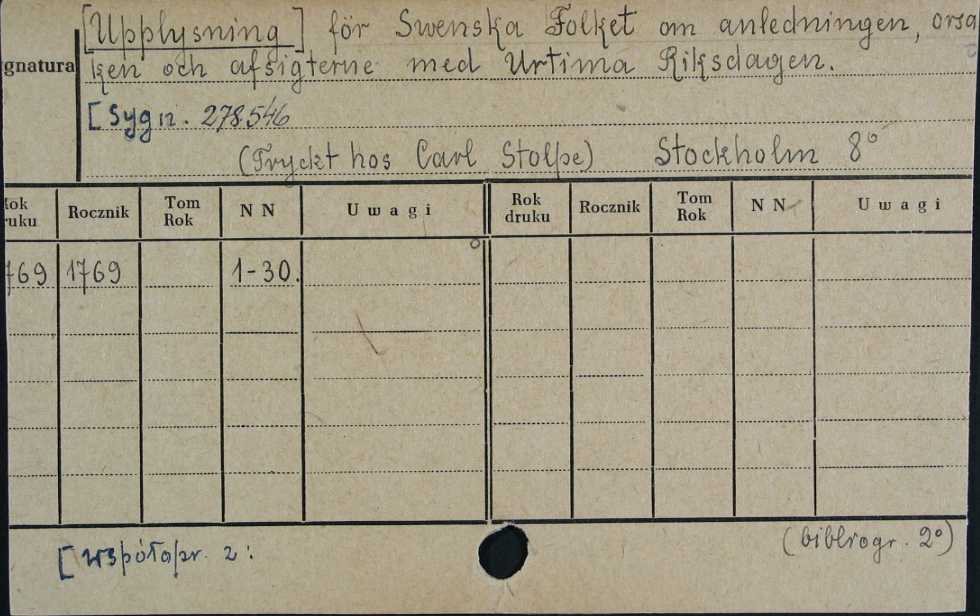 [Upplysning] för Swenska Folket om anledningen, orsa
gnatura
ken och afsigterne med Urtima Riksdagen.
[Sygn. 278546
(Tryckt hos Carl Stolpe) Stockholm 8°
Rok druku Rocznik Tom Rok NN Uwagi Rok druku Rocznik Tom Rok NN Uwagi
769 1769 1-30.
[współopr. z:
(bibliogr. 2°)